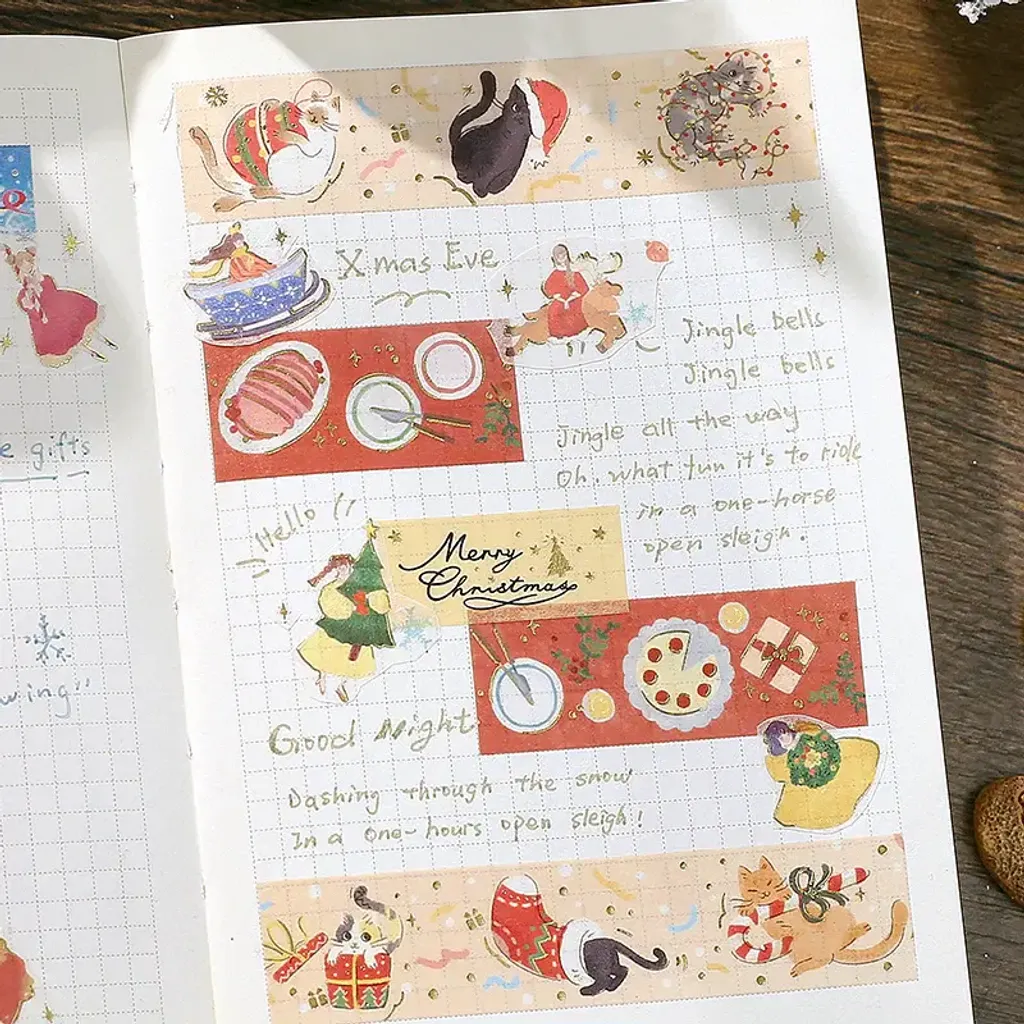 e
e gifts
wing"
Xmas Eve
Jingle bells
Jingle bells
Jingle all the way
Oh. what fun it's to ride
in a one-horse
open sleigh.
Hello
Merry
Christmas
Good Night
Dashing through the snow
In a one-hours open sleigh!